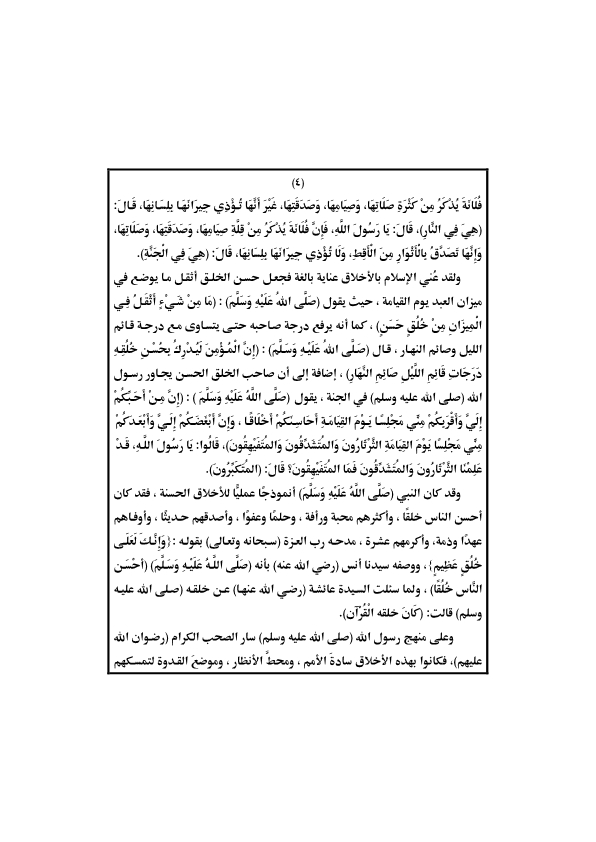 (٤)
فُلَانَةَ يُذْكَرُ مِنْ كَثْرَةِ صَلَاتِهَا، وَصِيَامِهَا، وَصَدَقَتِهَا، غَيْرَ أَنَّهَا تُؤْذِي جِيرَانَهَا بِلِسَانِهَا، قَالَ:
(هِيَ فِي النَّارِ)، قَالَ: يَا رَسُولَ اللَّهِ، فَإِنَّ فُلَانَةَ يُذْكَرُ مِنْ قِلَّةِ صِيَامِهَا، وَصَدَقَتِهَا، وَصَلَاتِهَا،
وَإِنَّهَا تَصَدَّقُ بِالْأَثْوَارِ مِنَ الْأَقِطِ، وَلَا تُؤْذِي جِيرَانَهَا بِلِسَانِهَا، قَالَ: (هِيَ فِي الْجَنَّةِ).
ولقد عُني الإسلام بالأخلاق عناية بالغة فجعل حسن الخلق أثقل ما يوضع في
ميزان العبد يوم القيامة ، حيث يقول (صَلَّى اللهُ عَلَيْهِ وَسَلَّمَ) : (مَا مِنْ شَيْءٍ أَثْقَلُ فِي
الْمِيزَانِ مِنْ خُلُقٍ حَسَنٍ) ، كما أنه يرفع درجة صاحبه حتى يتساوى مع درجة قائم
الليل وصائم النهار ، قال (صَلَّى اللهُ عَلَيْهِ وَسَلَّمَ) : (إِنَّ الْمُؤْمِنَ لَيُدْرِكُ بِحُسْنِ خُلُقِهِ
دَرَجَاتِ قَائِمِ اللَّيْلِ صَائِمِ النَّهَارِ) ، إضافة إلى أن صاحب الخلق الحسن يجاور رسول
الله (صلى الله عليه وسلم) في الجنة ، يقول (صَلَّى اللَّهُ عَلَيْهِ وَسَلَّمَ ) : (إِنَّ مِنْ أَحَبِّكُمْ
إِلَيَّ وَأَقْرَبِكُمْ مِنِّي مَجْلِسًا يَوْمَ القِيَامَةِ أَحَاسِنَكُمْ أَخْلَاقًا ، وَإِنَّ أَبْغَضَكُمْ إِلَيَّ وَأَبْعَدَكُمْ
مِنِّي مَجْلِسًا يَوْمَ القِيَامَةِ الثَّرْثَارُونَ وَالمُتَشَدِّقُونَ وَالمُتَفَيْهِقُونَ)، قَالُوا: يَا رَسُولَ اللَّهِ، قَدْ
عَلِمْنَا الثَّرْثَارُونَ وَالمُتَشَدِّقُونَ فَمَا المُتَفَيْهِقُونَ؟ قَالَ: (المُتَكَبِّرُونَ).
وقد كان النبي (صَلَّى اللَّهُ عَلَيْهِ وَسَلَّمَ) أنموذجًا عمليًّا للأخلاق الحسنة ، فقد كان
أحسن الناس خلقًا ، وأكثرهم محبة ورأفة ، وحلمًا وعفوًا ، وأصدقهم حديثًا ، وأوفاهم
عهدًا وذمة، وأكرمهم عشرة ، مدحه رب العزة (سبحانه وتعالى) بقوله :{وَإِنَّكَ لَعَلَى
خُلُقٍ عَظِيمٍ} ، ووصفه سيدنا أنس (رضي الله عنه) بأنه (صَلَّى اللَّهُ عَلَيْهِ وَسَلَّمَ) (أَحْسَن
النَّاس خُلُقًا) ، ولما سئلت السيدة عائشة (رضي الله عنها) عن خلقه (صلى الله عليه
وسلم) قالت: (كَانَ خلقه الْقُرْآن).
وعلى منهج رسول الله (صلى الله عليه وسلم) سار الصحب الكرام (رضوان الله
عليهم)، فكانوا بهذه الأخلاق سادةَ الأمم ، ومحطَّ الأنظار ، وموضعَ القدوة لتمسكهم